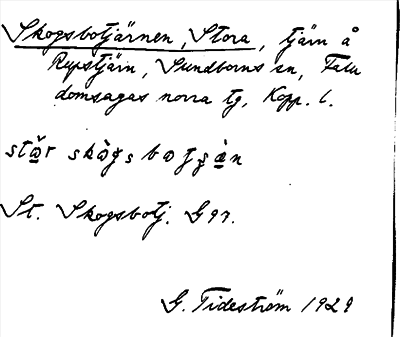 Skogsbotjärnen, Stora, tjärn å
Repstjärn, Sundborns sn, Falu
domsagas norra tg, Kopp. l.
St. Skogsbotj. Gqr.
G. Tideström 1929